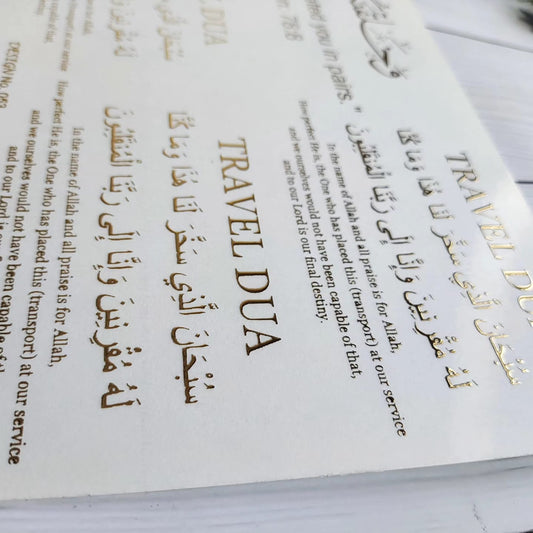 TRAVEL DUA
سُبْحَانَ الَّذِي سَخَّرَ لَنَا هَذَا وَمَا كُنَّا
لَهُ مُقْرِنِينَ وَإِنَّا إِلَى رَبِّنَا لَمُنْقَلِبُونَ
In the name of Allah and all praise is for Allah,
How perfect He is, the One who has placed this (transport) at our service
and we ourselves would not have been capable of that,
and to our Lord is our final destiny.
you in pairs."
78:8
TRAVEL DUA
سُبْحَانَ الَّذِي سَخَّرَ لَنَا هَذَا وَمَا كُنَّا
لَهُ مُقْرِنِينَ وَإِنَّا إِلَى رَبِّنَا لَمُنْقَلِبُونَ
In the name of Allah and all praise is for Allah,
How perfect He is, the One who has placed this (transport) at our service
and we ourselves would not have been capable of
and to our Lord is our
DESIGN No. 083
DUA